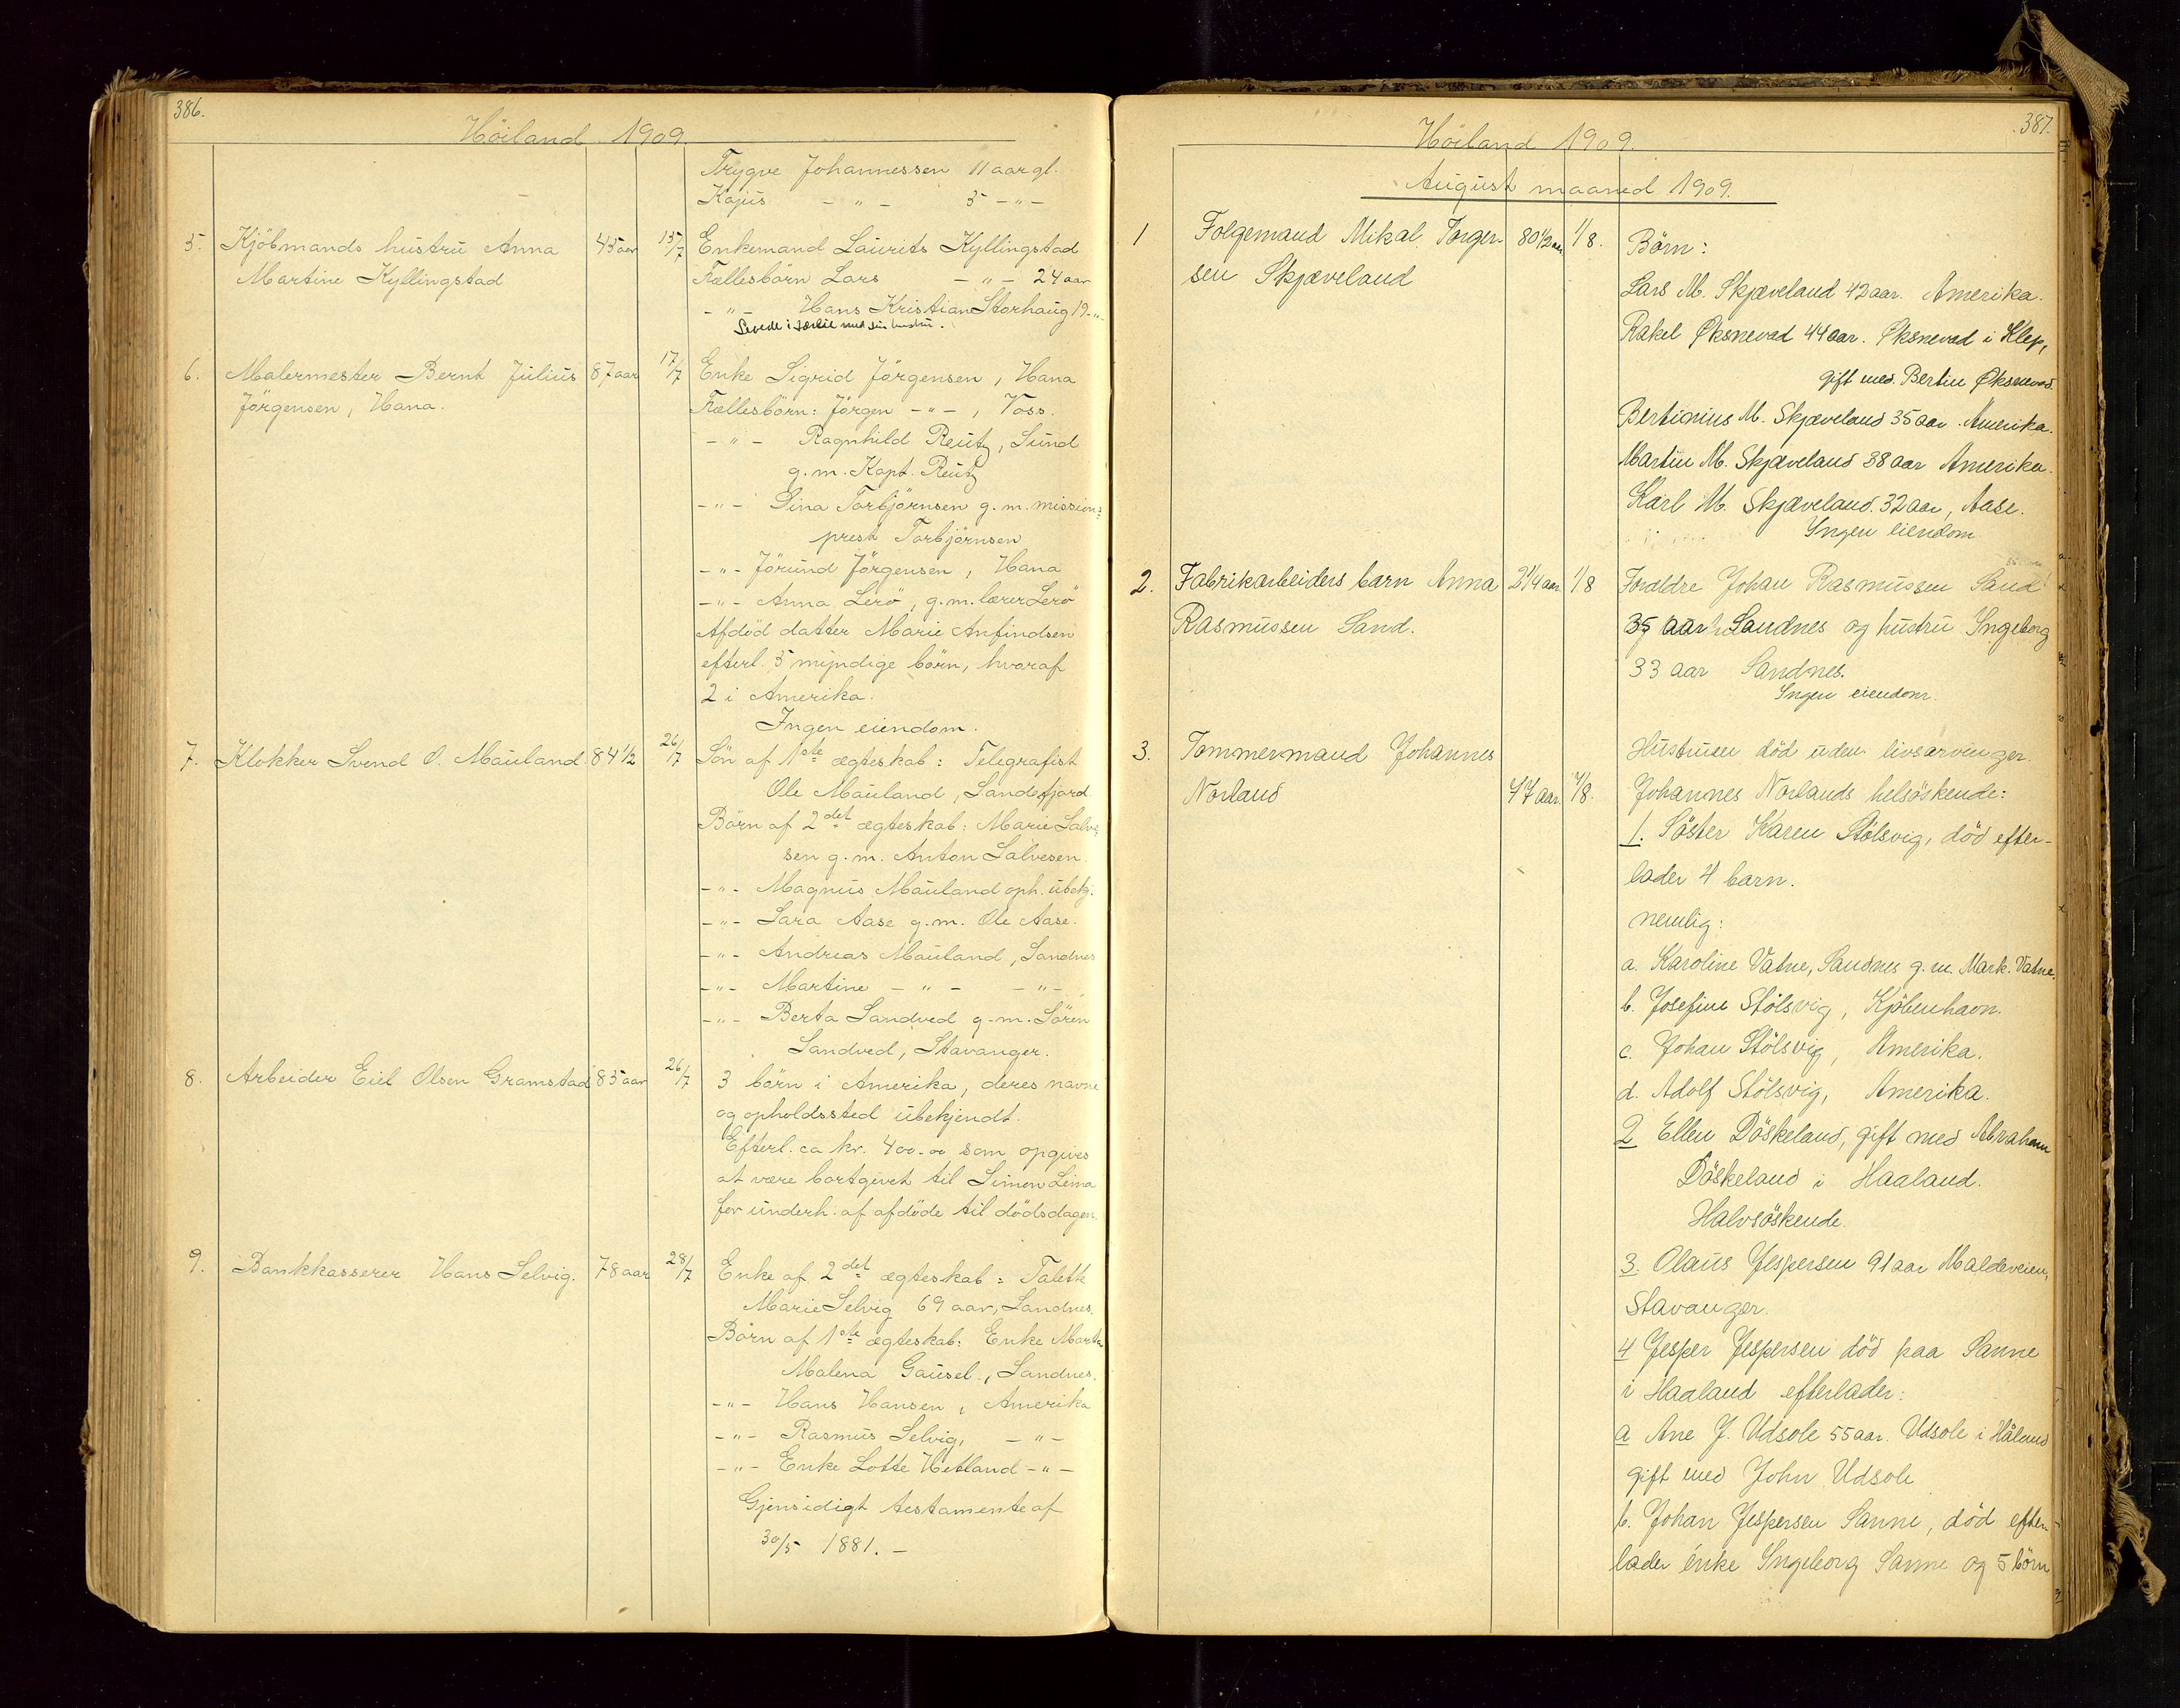 386.
Höiland 1909.
Trygve Johannessen 11 aar gl.
Kajus - " - 5 - " -
5. Kjöbmands hustru Anna 45 aar 15/7 Enkemand Laurits Kyllingstad
Martine Kyllingstad Fællesbörn Lars - " - 24 aar
- " - Hans Kristian Storhaug 19 - " -
Levede i særbo med sin hustru.
6. Malermester Bernt Julius 87 aar 17/7 Enke Sigrid Jörgensen, Hana
Jörgensen, Hana. Fællesbörn: Jörgen - " - , Voss.
- " - Ragnhild Reutz, Sund
g. m. Kapt. Reutz
- " - Dina Torbjörnsen g. m. missions=
prest Torbjörnsen
- " - Jörund Jörgensen, Hana
- " - Anna Lerö, g. m. lærer Lerö
Afdöd datter Marie Anfindsen
efterl. 5 myndige börn, hvoraf
2 i Amerika.
Ingen eiendom.
7. Klokker Svend O. Mauland. 84 1/2 26/7 Sön af 1ste ægteskab: Telegrafist
Ole Mauland, Sandefjord
Börn af 2det ægteskab: Marie Salve=
sen g. m. Anton Salvesen.
- " - Magnus Mauland oph. ubekj.
- " - Sara Aase g. m. Ole Aase.
- " - Andreas Mauland, Sandnes
- " - Martine - " - - " -
- " - Berta Sandved g. m. Sören
Sandved, Stavanger.
8. Arbeider Eiel Olsen Gramstad 85 aar 26/7 3 börn i Amerika, deres navne
og opholdssted ubekjendt.
Efterl. ca kr. 400.00 som opgives
at være bortgivet til Simon Leina
for underh. af afdöde til dödsdagen.
9. Bankkasserer Hans Selvig. 78 aar 28/7 Enke af 2det ægteskab: Talette
Marie Selvig 69 aar, Sandnes.
Börn af 1ste ægteskab: Enke Marta
Malena Gausel, Sandnes.
- " - Hans Hansen, Amerika
- " - Rasmus Selvig, - " -
- " - Enke Lotte Hetland - " -
Gjensidigt testamente af
30/5 1881. -
387.
Höiland 1909.
August maaned 1909.
1 Folgemand Mikal Torger- 80 1/2 aar 1/8. Börn:
sen Skjæveland Lars M. Skjæveland 42 aar. Amerika.
Rakel Øksnevad 44 aar. Øksnevad i Klep,
gift med Bertin Øksnevad.
Bertinius M. Skjæveland 35 aar. Amerika.
Martin M. Skjæveland 38 aar Amerika.
Karl M. Skjæveland. 32 aar, Aase.
Ingen eiendom
2. Fabrikarbeiders barn Anna 2 1/4 aar. 1/8 Foraldre Johan Rasmussen Sand
Rasmussen Sand. 35 aar Sandnes og hustru Ingeborg
33 aar Sandnes.
Ingen eiendom.
3. Tommermand Johannes Hustruen död uden livsarvinger.
Norland 77 aar. 7/8. Johannes Norlands helsöskende:
1. Söster Karen Stölsvig, död efter-
lader 4 barn.
nemlig:
a. Karoline Vatne, Sandnes g. m. Mark. Vatne.
b. Josefine Stölsvig, Kjöbenhavn.
c. Johan Stölsvig, Amerika.
d. Adolf Stölsvig, Amerika.
2 Ellen Döskeland, gift med Abraham
Döskeland i Haaland.
Halvsöskende.
3. Olaus Jespersen 91 aar Maldeveien,
Stavanger.
4 Jesper Jespersen död paa Sanne
i Haaland efterlader:
a Ane J. Udsole 55 aar. Udsole i Håland
gift med John Udsole
b. Johan Jespersen Sanne, död efter-
lader enke Ingeborg Sanne og 5 börn